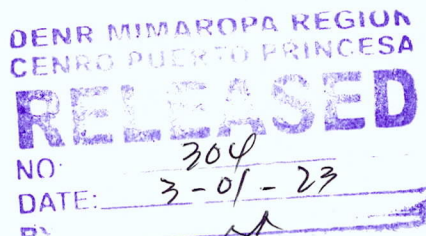 DENR MIMAROPA REGION
CENRO PUERTO PRINCESA
RELEASED
NO: 304
DATE: 3-01-23
BY